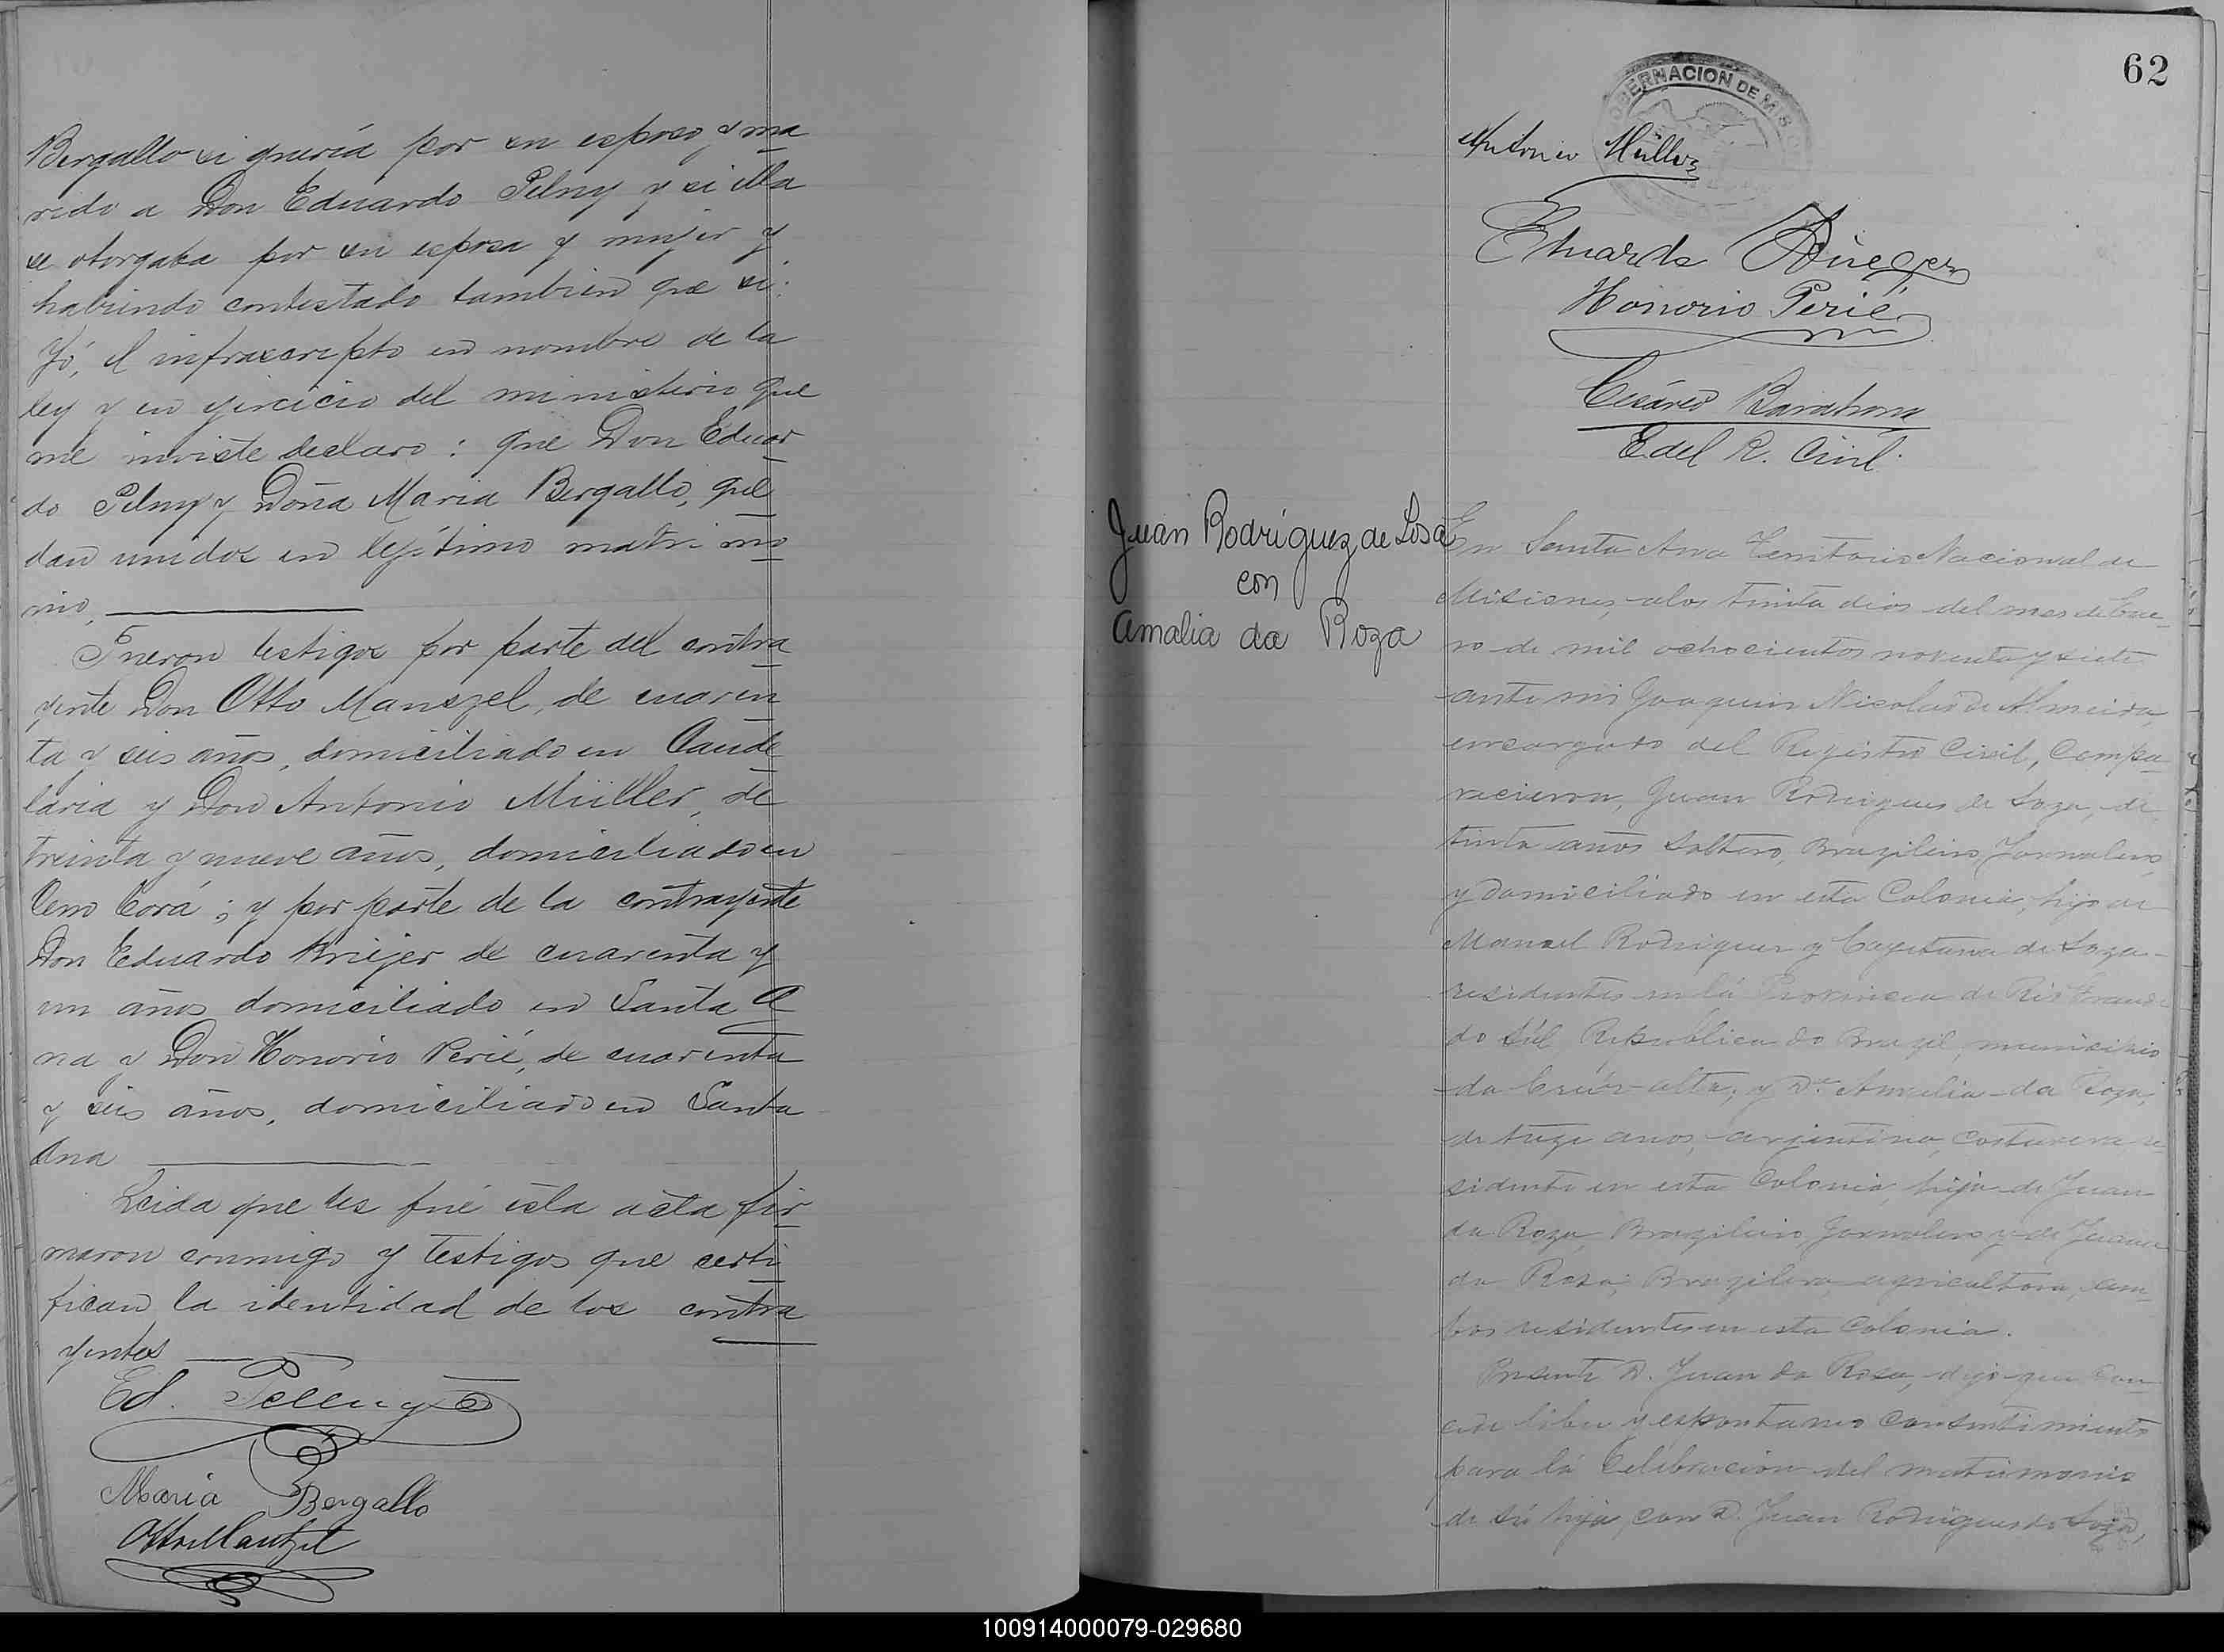 Bergallo si queria por su esposo y ma
rido a Don Eduardo Pelny y si ella
se otorgaba por su esposa y mujer y
habiendo contestado tambien que si:
Yó, el infraescripto en nombre de la
ley y en ejercicio del ministerio que
me inviste declaro: que Don Eduar
do Pelny y Doña Maria Bergallo, que
dan unidos en legítimo matrimo
nio,
Fueron testigos por parte del contra
yente Don Otto Manszel, de cuaren
ta y seis años, domiciliado en Cande
laria y Don Antonio Müller, de
treinta y nueve años, domiciliado en
Cerro Corá; y por parte de la contrayente
Don Eduardo Krieger de cuarenta y
un años domiciliado en Santa A
na y Don Honorio Perié, de cuarenta
y seis años, domiciliado en Santa
Ana
Leida que les fué esta acta fir
maron conmigo y testigos que certi
fican la identidad de los contra
yentes
Ed. Pellny
Maria Bergallo
Otto Mantzel
62
GOBERNACION DE MISIONES
Antonio Müller
Eduardo
Honorio Perié
Cesáreo Barahona
E. del R. Civil
Juan Rodríguez de Sosa
con
Amalia da Roza
En Santa Ana Territorio Nacional de
Misiones, alos trinta dias del mes de Ene-
ro de mil ochocientos noventa y siete
ante mi Joaquin Nicolas de Almeida,
encargado del Registro Civil, Compa-
recieron, Juan Rodrigues de Soza, de
trinta años Soltero, Brazilero, Jornalero,
y domiciliado en esta Colonia, hijo de
Manuel Rodriguez y Cayetana de Soza-
residentes en lá Provincia de Rio Grande
do Súl Republica do Brazil, municipio
da Crús-alta; y Da. Amalia da Roza,
de treze anos, argentina, Costurera re-
sidente en esta Colonia hija de Juan
da Roza, Brazilero, Jornalero y de Juana
da Roza, Brazilera, agricultora, am-
bos residentes en esta Colonia.
Presente D. Juan da Rosa, dijo que con-
cede libre y espontaneo Consentimiento
para lá Celebracion del matrimonio
de sú hija, con D. Juan Rodrigues de Soza,
100914000079-029680